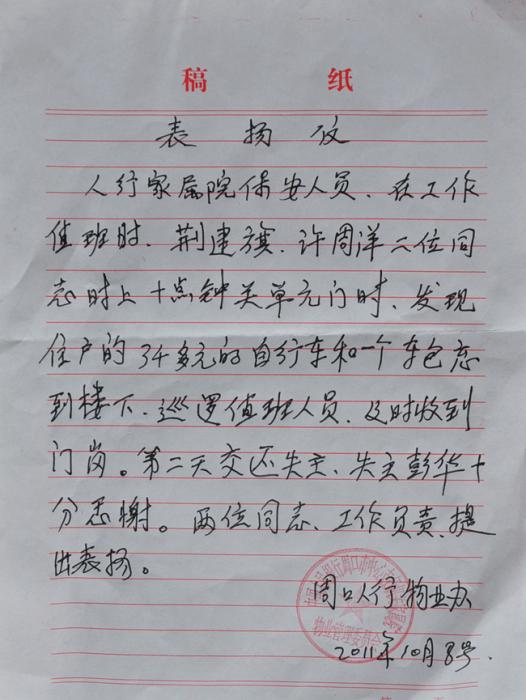 稿 纸
表扬仪
人行家属院保安人员、在工作
值班时、荆建旗、许周洋二位同
志时上十点钟关单元门时、发现
住户的34多元的自行车和一个车包忘
到楼下、巡逻值班人员、及时收到
门岗。第二天交还失主、失主彭华十
分感谢。两位同志、工作负责、提
出表扬。
周口人行物业办
物业管理委员会
2011年10月8号.